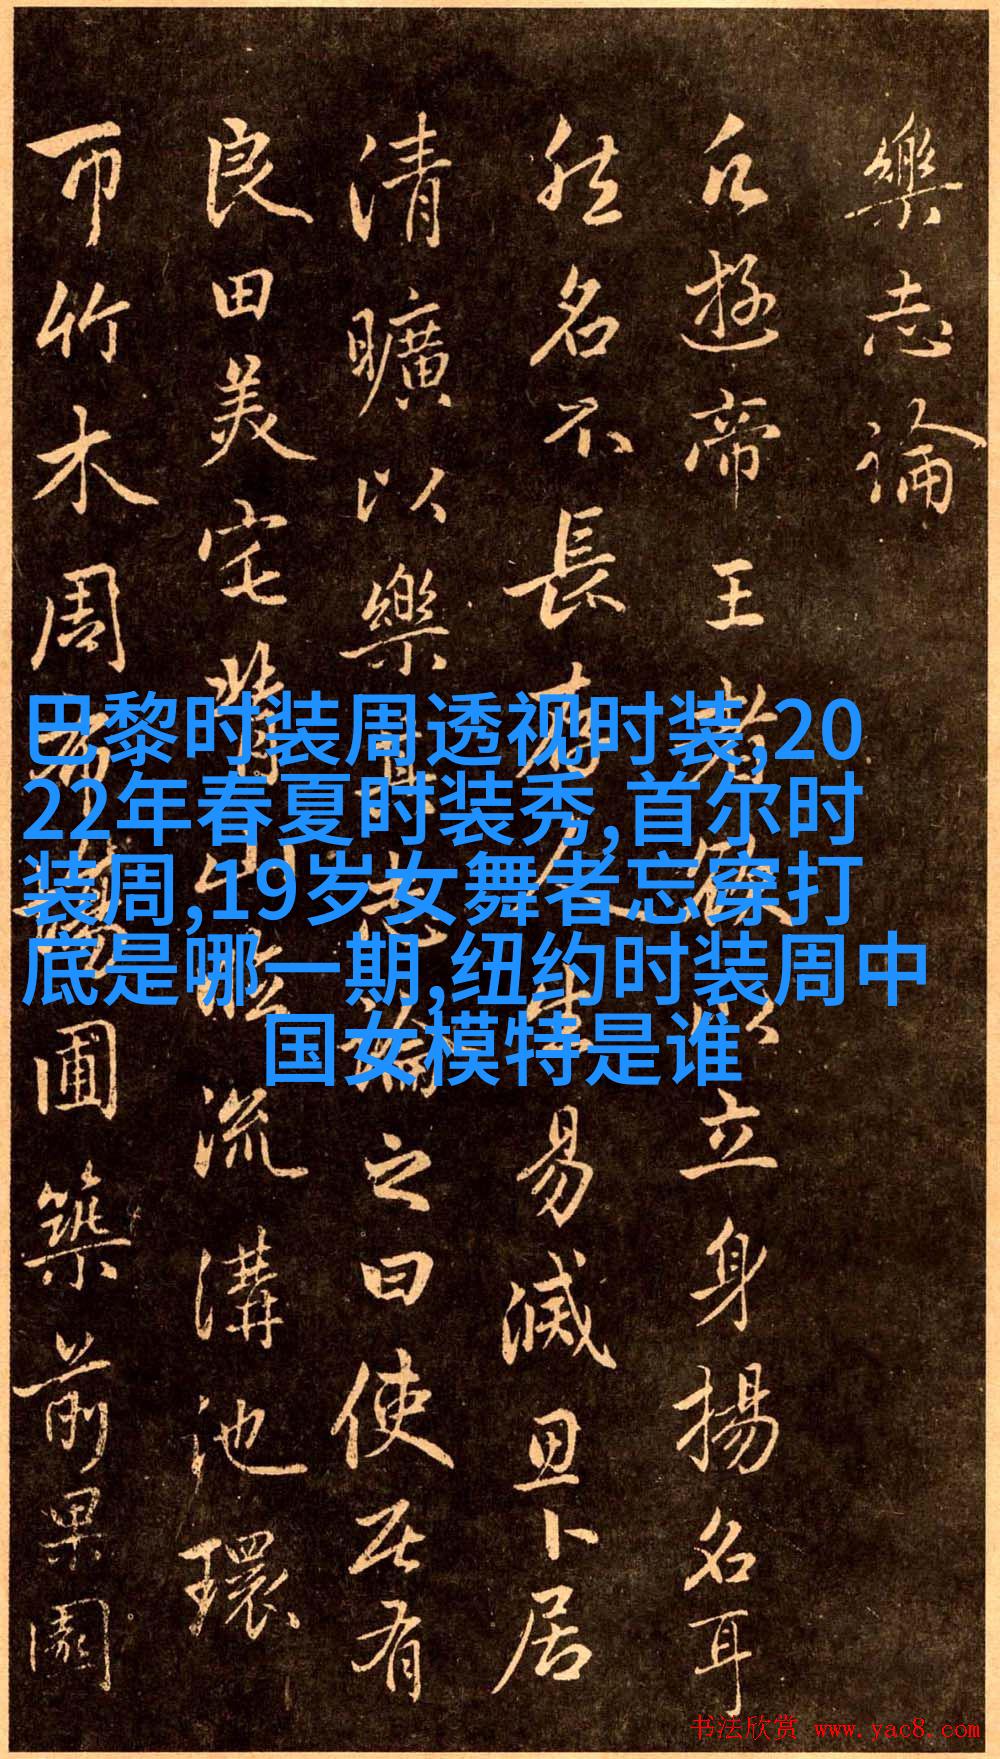 樂志論
凡遊帝王者欲以立身揚名耳
然名不長存人生易滅且卜居
清曠以樂其志論之曰使居有
良田美宅背山臨流溝池環
帀竹木周布圃築前果園
巴黎时装周透视时装,20
22年春夏时装秀,首尔时
装周,19岁女舞者忘穿打
底是哪一期,纽约时装周中
国女模特是谁
书法欣赏 www.yac8.com